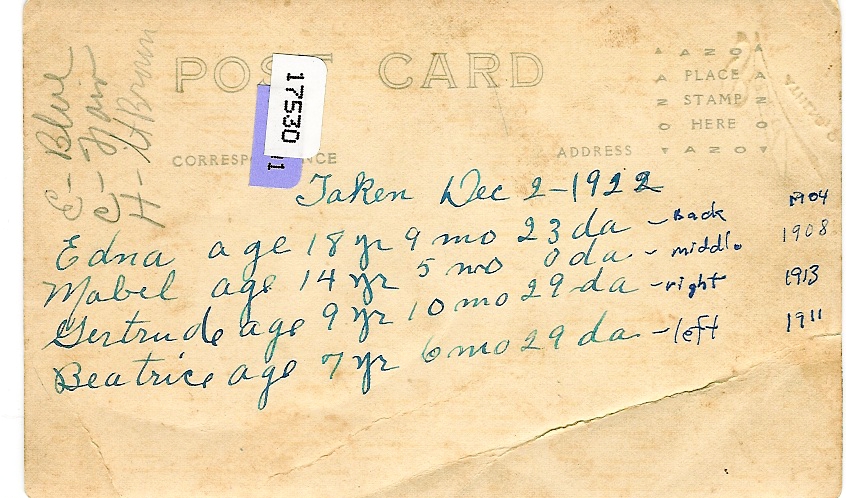 POST CARD
CORRESPONDENCE
ADDRESS
AZO
PLACE
STAMP
HERE
AZO
17530
11
E- Blue
C- Fair
H- Lt Brown
Taken Dec 2-1922
Edna age 18 yr 9 mo 23 da - Back 1904
Mabel age 14 yr 5 mo 0 da - middle 1908
Gertrude age 9 yr 10 mo 29 da - right 1913
Beatrice age 7 yr 6 mo 29 da - left 1911